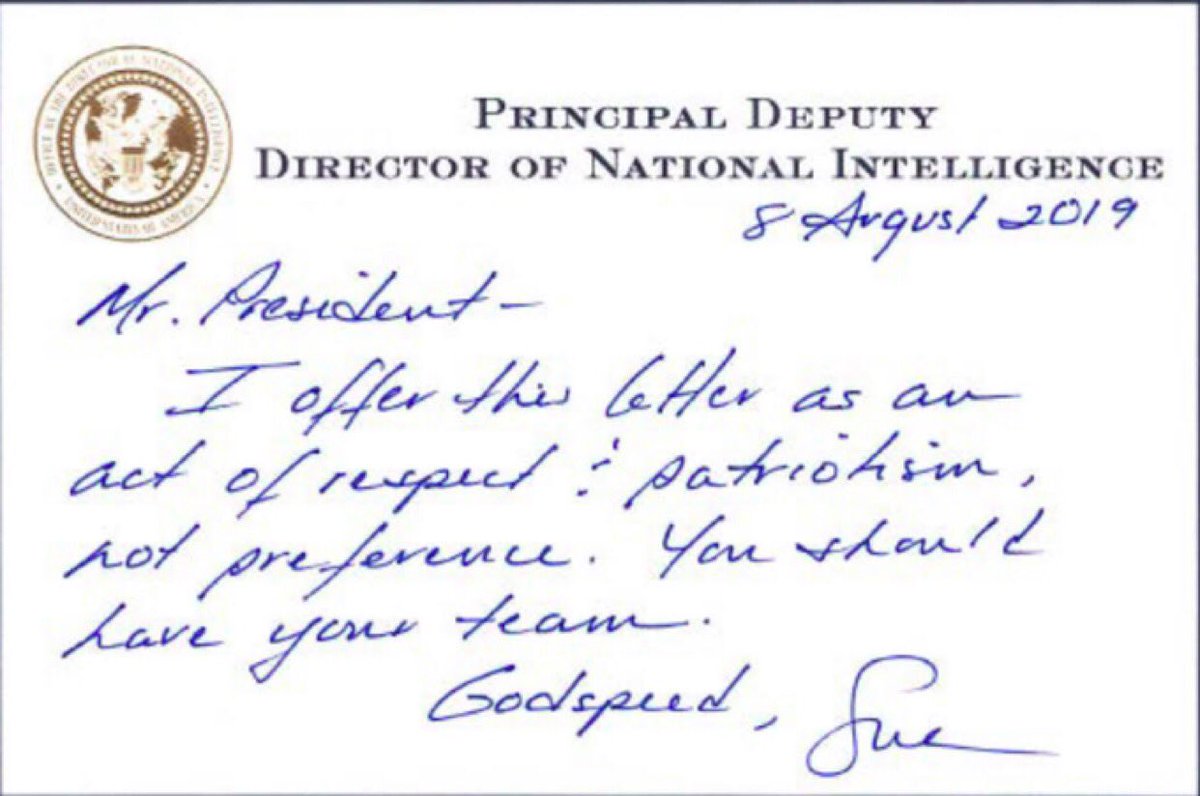 OFFICE OF THE DIRECTOR OF NATIONAL INTELLIGENCE
UNITED STATES OF AMERICA
PRINCIPAL DEPUTY
DIRECTOR OF NATIONAL INTELLIGENCE
8 August 2019
Mr. President –
I offer this letter as an
act of respect & patriotism,
not preference. You should
have your team.
Godspeed, Sue